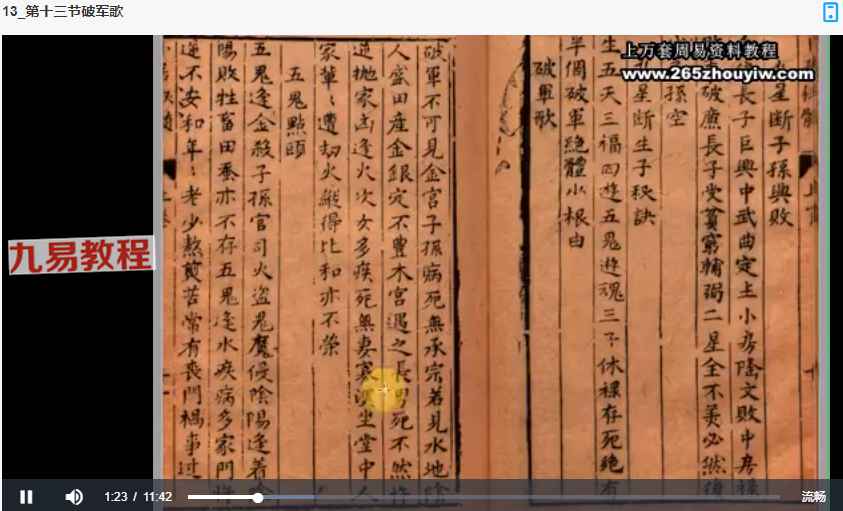 13_第十三节破军歌
上万套周易资料教程
www.265zhouyiw.com
九易教程
星断子孫興敗
長子巨興中武曲定主小房隆文敗中房祿
破廉長子受貧窮輔弼二星全不美必然
孫空
星断生子秘訣
生五天三福四遊五鬼遊魂三子休祿存死絶有
半個破軍絶體小根由
破軍歌
破軍不可見金宮子孫病死無承宗若見水地
人蚕田産金銀定不豊木宮遇之長男死不然
逆抛家凶逢火次女多疾死無妻寡漢坐堂中人
家輩輩遭劫火縱得比和亦不榮
五鬼點頭
五鬼逢金殺子孫官司火盗鬼魔侵陰陽逢着
陽敗牲畜田蚕亦不存五鬼逢水疾病多家門
逆不安和年年老少熬煎苦常有喪門禍事过
1:23 / 11:42
流畅